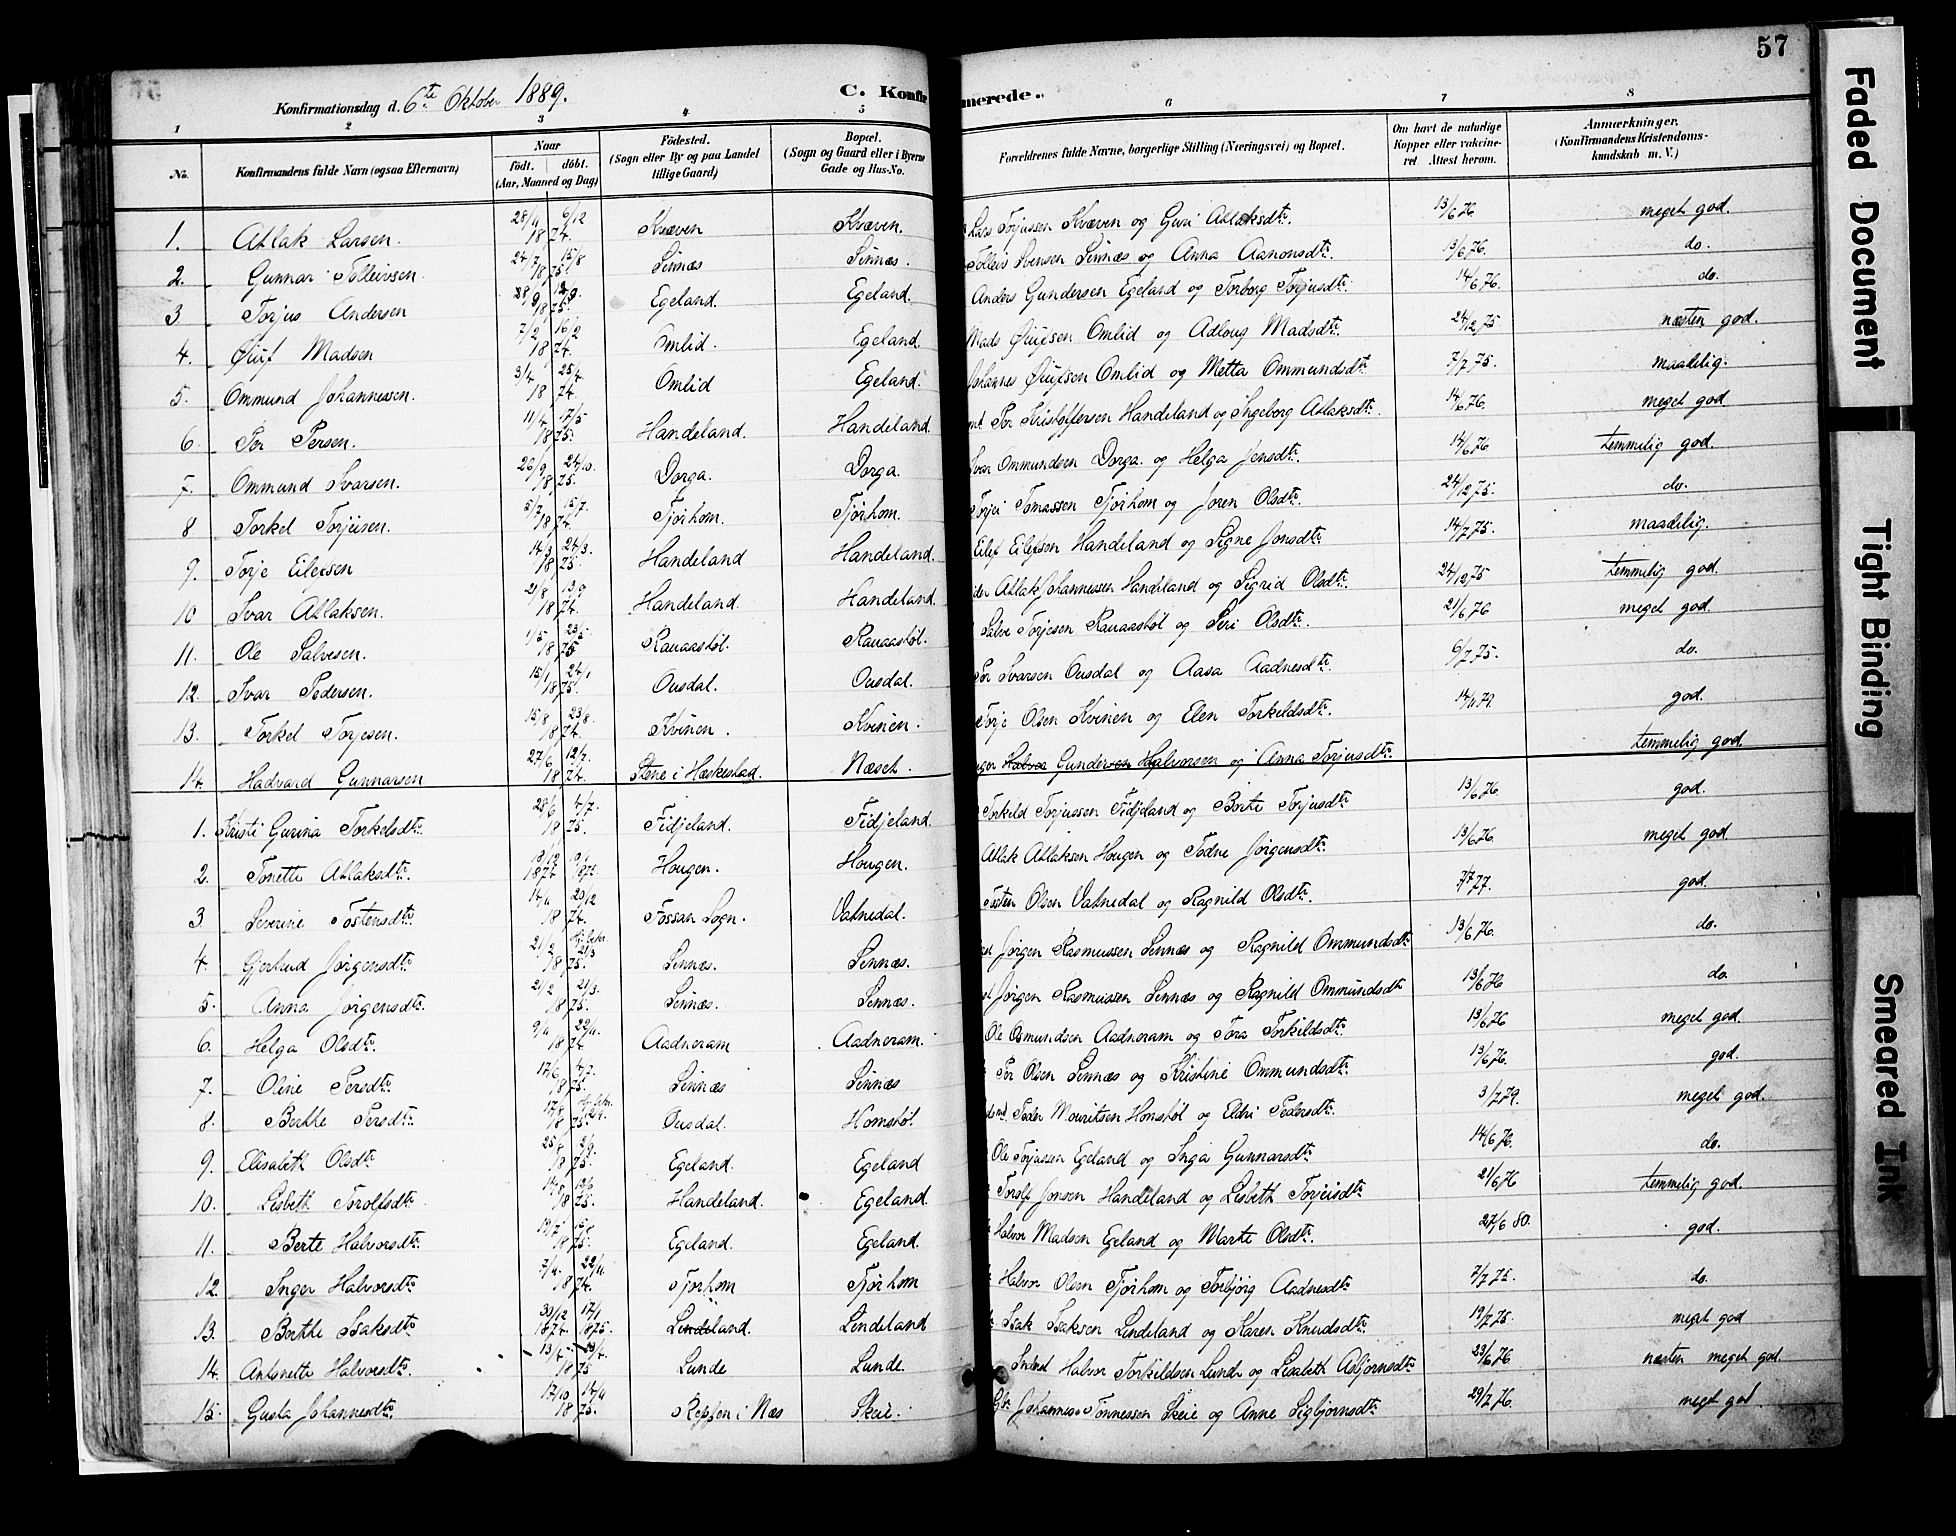 57
Konfirmationsdag d. 6te Oktober 1889.
C. Konfirmerede.
1 2 3 4 5 6 7 8
No. Konfirmandens fulde Navn (ogsaa Efternavn) Naar født. døbt. (Aar, Maaned og Dag) Fødested. (Sogn eller By og paa Landet tillige Gaard) Bopæl. (Sogn og Gaard eller i Byerne Gade og Hus-No. Forældrenes fulde Navne, borgerlige Stilling (Næringsvei) og Bopæl. Om havt de naturlige Kopper eller vaccineret. Attest herom. Anmærkninger. (Konfirmandens Kristendomskundskab m. V.)
1. Atlak Larsen. 28/11 6/12 1874. Kvæven Kvæven. Lars Torjussen Kvæven og Guri Atlaksdtr. 13/6 76 meget god.
2. Gunnar Tolleivsen 24/7 15/8 1875 Sinnæs Sinnæs. Tolleiv Svensen Sinnæs og Anna Aanonsdtr. 13/6 76. do.
3 Torjus Andersen 1875. Egeland. Egeland. Anders Gundersen Egeland og Torborg Torjusdtr. 14/6 76. do.
4. Madsen 7/2 16/2 1874. Omlid. Egeland. Mads Omlid og Adloug Madsdtr. 24/12 75 næsten god.
5. Ommund Johannessen. 3/4 25/4 1874. Omlid Egeland. Johannes Omlid og Metta Ommundsdtr 7/7 75. maadelig.
6. Per Persen. 11/4 17/5 1875. Handeland. Handeland. Per Kristoffersen Handeland og Ingeborg Atlaksdtr. 14/6 76. meget god
7. Ommund Ivarsen. 26/9 24/10. 1875. Dorga. Dorga. Ivar Ommundsen Dorga. og Helga Jensdtr. 14/6 76 temmelig god.
8 Torkel Torjeisen. 5/7 15/7. 1874. Tjørhom. Tjørhom. Torjei Tomassen Tjørhom og Joren Olsdtr. 24/12 75. do.
9. Torje Eilefsen 14/3 24/3. 1875. Handeland Handeland. Eilef Eilefsen Handeland og Signe Jonsdtr 14/7 75. maadelig.
10 Ivar Atlaksen. 2/8 13/9 1874. Handeland. Handeland. Atlak Johannessen Handeland og Sigrid Olsdtr. 24/12 75 temmelig god.
11. Ole Salvesen. 1/5 23/5 1875 Rauaastøl. Rauaastøl. Salve Torjesen Rauaastøl og Siri Olsdtr. 21/6 76 meget god.
12. Ivar Pedersen. 15/1 24/1 1875. Ousdal. Ousdal. Per Ivarsen Ousdal og Aasa Aadnesdtr. 6/7 75. do.
13. Torkel Torjesen. 15/8 23/8. 1874. Kvinen. Kvinen. Torje Olsen Kvinen og Elen Torkildsdtr. god.
14. Hadvard Gunnarsen 27/6 12/7. 1874. Stene i Hæskestad. Næset. Gundersen Halvorsen og Anna Torjusdtr temmelig god.
1. Kristi Gurina Torkelsdtr. 28/6 4/7. 1875. Fidjeland. Fidjeland. Torkild Torjussen Fidjeland og Berte Torjusdtr 13/6 76 god.
2. Tonette Atlaksdtr. 18/12 1874 10/1 1875. Hougen. Hougen. Atlak Atlaksen Hougen og Todne Jørgensdtr. 13/6 76. meget god
3 Severine Tostensdtr. 14/11 20/12 1874. Fossan Sogn. Vatnedal. Tosten Olsen Vatnedal og Ragnild Olsdtr. 7/7 77. god.
4. Gjertrud Jørgensdtr 21/2 21/3 1875. Sinnæs. Sinnæs. Jørgen Rasmussen Sinnæs og Ragnild Ommundsdtr 13/6 76. do.
5. Anna Jørgensdtr. 21/2 21/3. 1875. Sinnæs. Sinnæs. Jørgen Rasmussen Sinnæs og Ragnild Ommundsdtr 13/6 76 do.
6. Helga Olsdtr. 9/11 22/11. 1874 Aadneram Aadneram. Ole Osmundsen Aadneram og Tora Torkildsdtr. 13/6 76 meget god.
7. Oline Persdtr. 17/6 4/7. 1875. Sinnæs Sinnæs Per Olsen Sinnæs og Kristine Ommundsdtr. 13/6 76. god.
8. Berthe Persdtr. 17/8 1875. Ousdal. Homstøl. Peder Mouritsen Homstøl og Eldri Pedersdtr. 3/7 79. meget god.
9. Elisabeth Olsdtr 1875. Egeland. Egeland Ole Torjussen Egeland og Inga Gunnarsdtr. 14/6 76. do.
10. Lisbeth Torolfsdtr. 1875. Handeland. Egeland. Torolf Jonsen Handeland og Lisbeth Torjeisdtr. 21/6 76 temmelig god.
11. Berte Halvorsdtr. 1875. Egeland. Egeland. Halvor Madsen Egeland og Marte Olsdtr. 27/6 80. god.
12. Inger Halvorsdtr 22/11. 1874. Tjørhom Tjørhom Halvor Olsen Tjørhom og Torbjørg Aadnesdtr 7/7 75. do.
13. Berthe Isaksdtr 30/12 1874. 17/1 1875. Lindeland. Lindeland Isak Isaksen Lindeland og Karen Knudsdtr. 19/7 75. meget god
14. Antonette Halvorsdtr. 13/4 1875 Lunde Lunde. Halvor Torkildsen Lunde og Lisabeth Asbjørnsdtr 23/6 76 næsten meget god.
15. Gusta Johannesdtr. 17/10 14/11 1875. Repfen i Næs Skeie. Johannes Tønnessen Skeie og Anne Sigbjørnsdtr 29/7 76. meget god.
Faded Document
Tight Binding
Smeared Ink